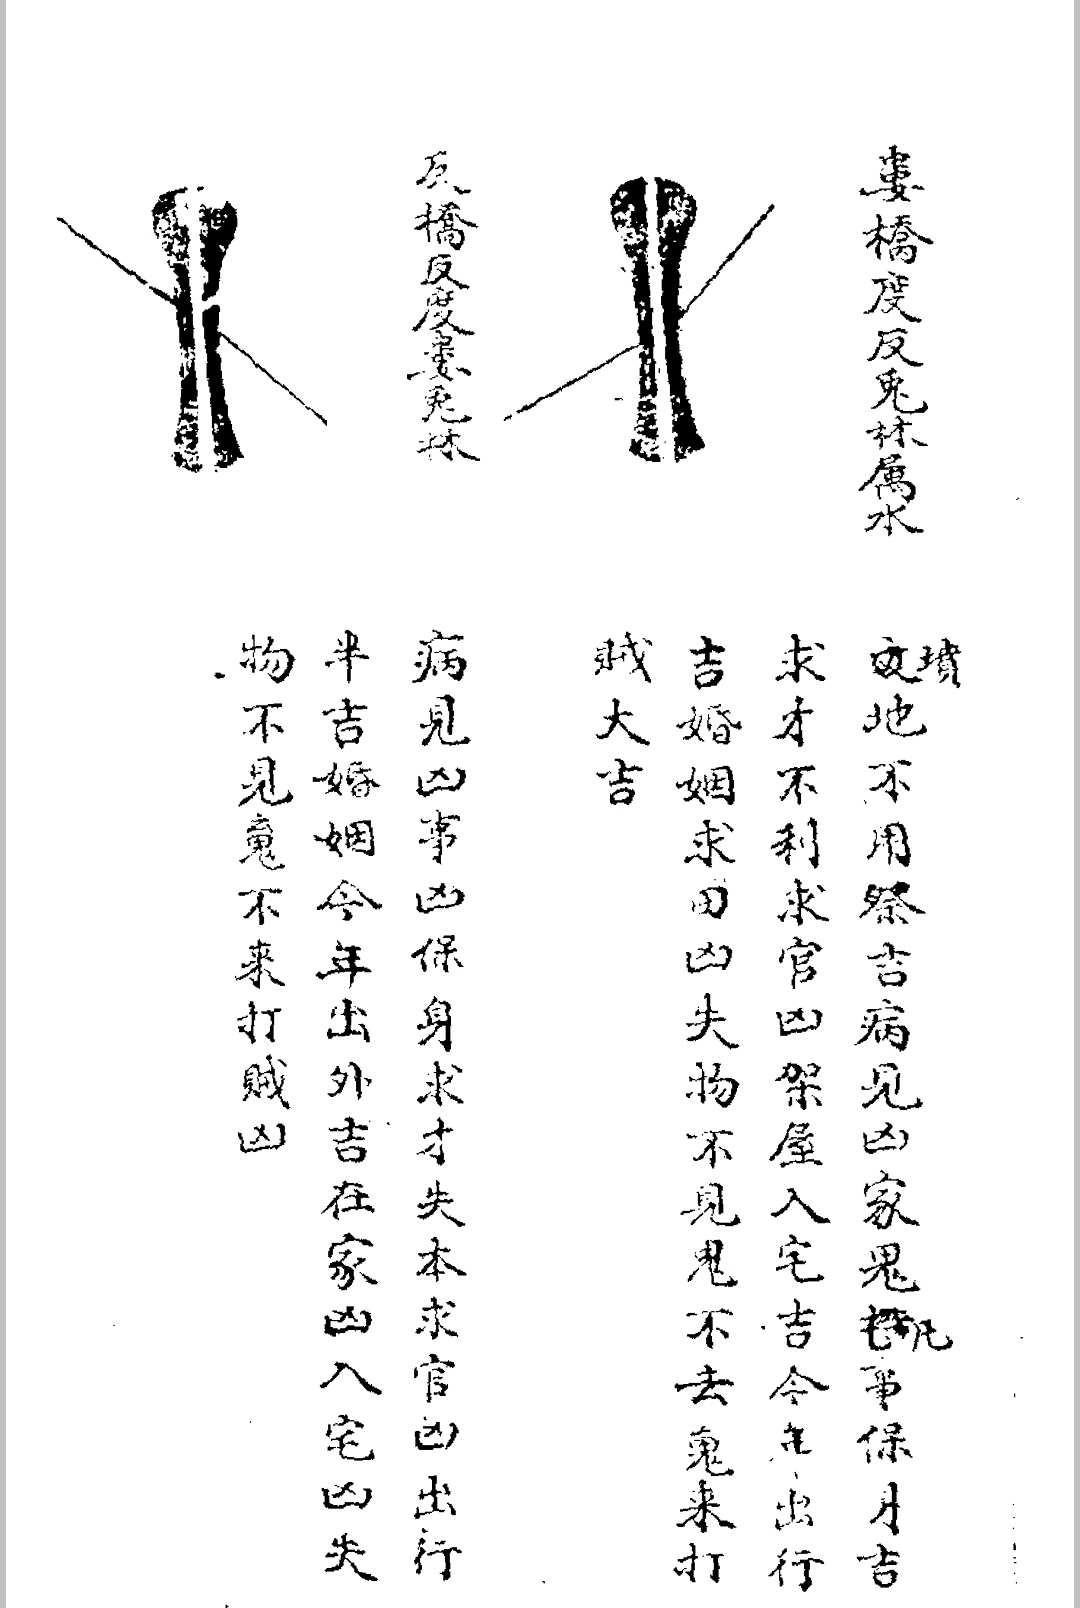 婁橋度反兎林属水
墳
地不用祭吉病見凶家鬼凡事保月吉
求才不利求官凶架屋入宅吉今年出行
吉婚姻求田凶失物不見鬼不去鬼來打
賊大吉
反橋反度婁兎林
病見凶事凶保身求才失本求官凶出行
半吉婚姻今年出外吉在家凶入宅凶失
物不見鬼不来打賊凶